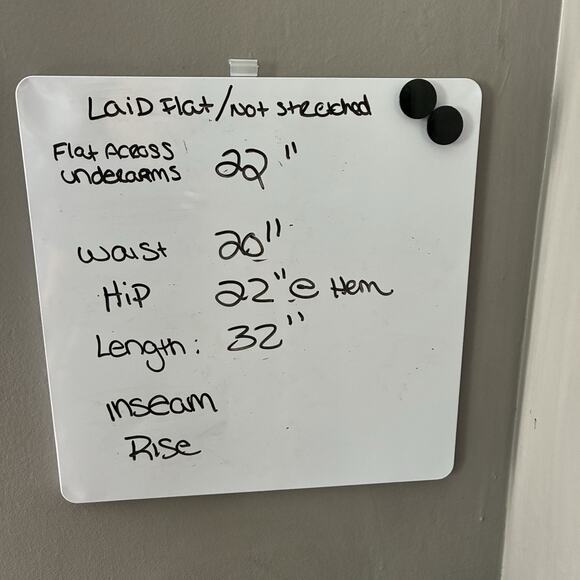 Laid Flat/Not Stretched
Flat Across
underarms 22"
Waist 20"
Hip 22" @ Hem
Length: 32"
inseam
Rise